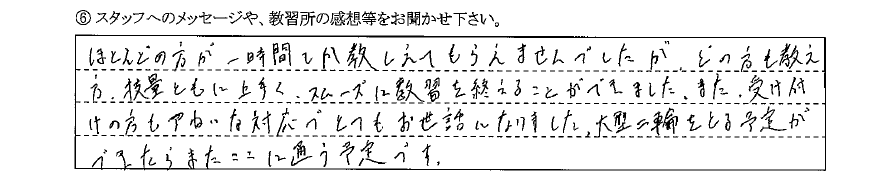 ⑥ スタッフへのメッセージや、教習所の感想等をお聞かせ下さい。
ほとんどの方が一時間しか教しえてもらえませんでしたが、どの方も教え
方、技量ともに上手く、スムーズに教習を終えることができました。また、受け付
けの方もていねいな対応でとてもお世話になりました。大型二輪をとる予定が
できたらまたここに通う予定です。